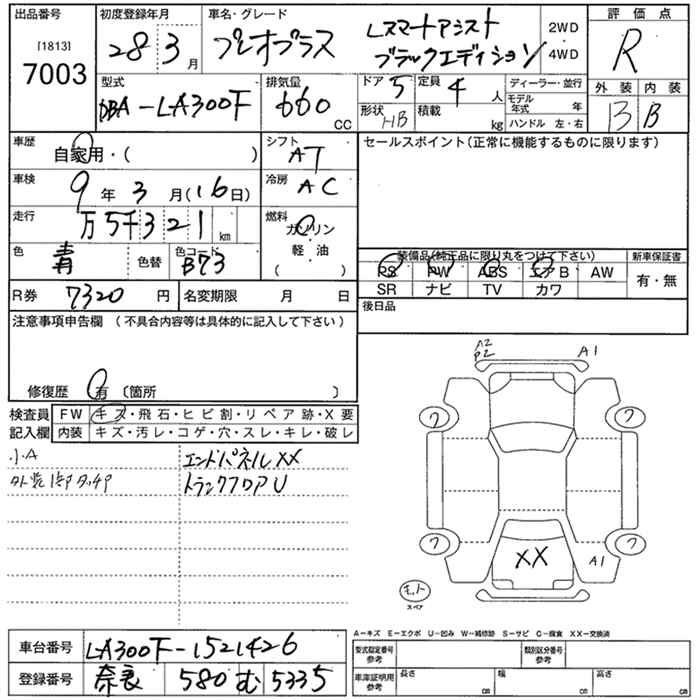 出品番号 初度登録年月 車名・グレード 評価点
[1813] 7003 28 3月 プレオプラス Lスマートアシスト ブラックエディション 2WD・4WD R
型式 排気量 ドア 5 定員 4人 ディーラー・並行 外装 内装
DBA-LA300F 660 CC 形状 HB 積載 kg モデル年式 年 B B
ハンドル 左・右
車歴 自家用・( ) シフト AT セールスポイント(正常に機能するものに限ります)
車検 9年3月(16日) 冷房 AC
走行 万5千321km 燃料 ガソリン・軽・油 ( )
色 青 色替 色コード B73
装備品(純正品に限り丸をつけて下さい) 新車保証書
PS PW ABS エアB AW 有・無
SR ナビ TV カワ
R券 7320円 名変期限 月 日 後日品
注意事項申告欄 (不具合内容等は具体的に記入して下さい)
修復歴 有 〔箇所 〕
検査員記入欄 FW キズ・飛石・ヒビ割・リペア跡・X要
内装 キズ・汚レ・コゲ・穴・スレ・キレ・破レ
小A エンドパネルXX
外装1部タッチP トランクフロアU
A2 P2 A1
7 7
7 7
XX A1
スペア
A-キズ E-エクボ U-凹み W-補修跡 S-サビ C-腐食 XX-交換済
車台番号 LA300F-1521426 型式指定番号 参考 類別区分番号 参考
登録番号 奈良 580 む 5335 車庫証明用 参考 長さ cm 幅 cm 高さ cm